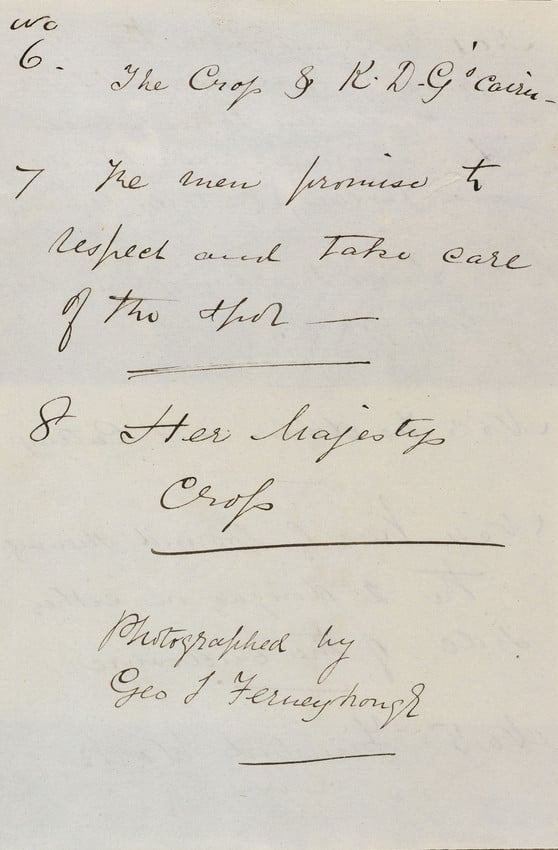 No
6. The Cross & K.D.G's Cairn-
7 The men promise to
respect and take care
of the spot —
8 Her Majestys
Cross
Photographed by
Geo T Ferneyhough